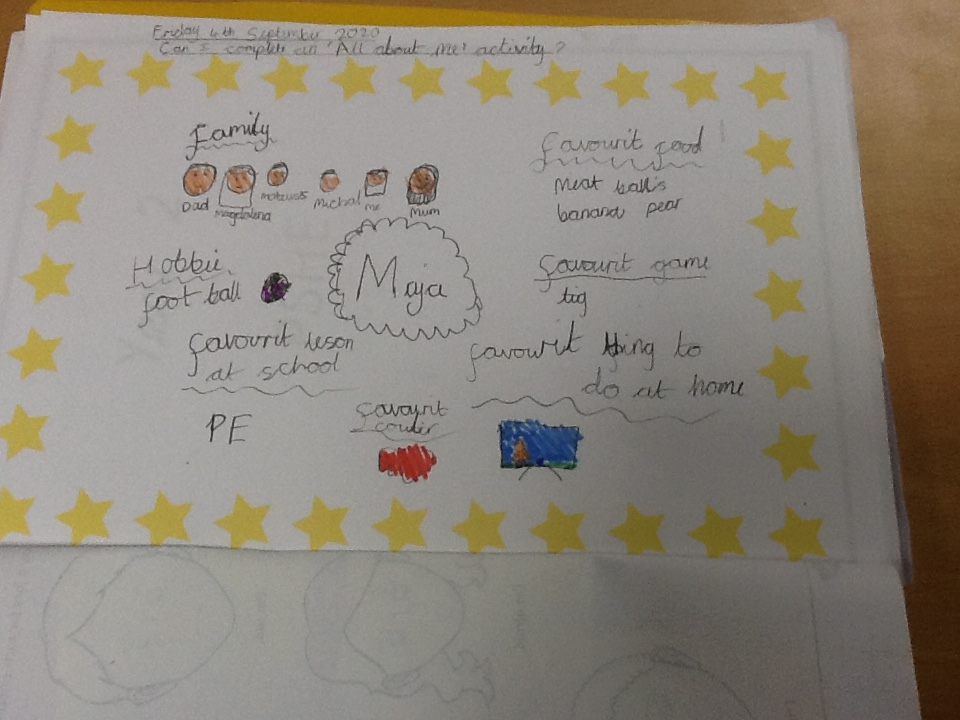 Friday 4th September 2020
Can I complete an 'All about me' activity?
Family
Dad
Magdalena
Mateusz
Michal
me
Mum
favourit food
meat ball's
banana pear
Maja
Hobbie
foot ball
favourit game
tig
favourit leson
at school
PE
favourit thing to
do at home
favourit
couler